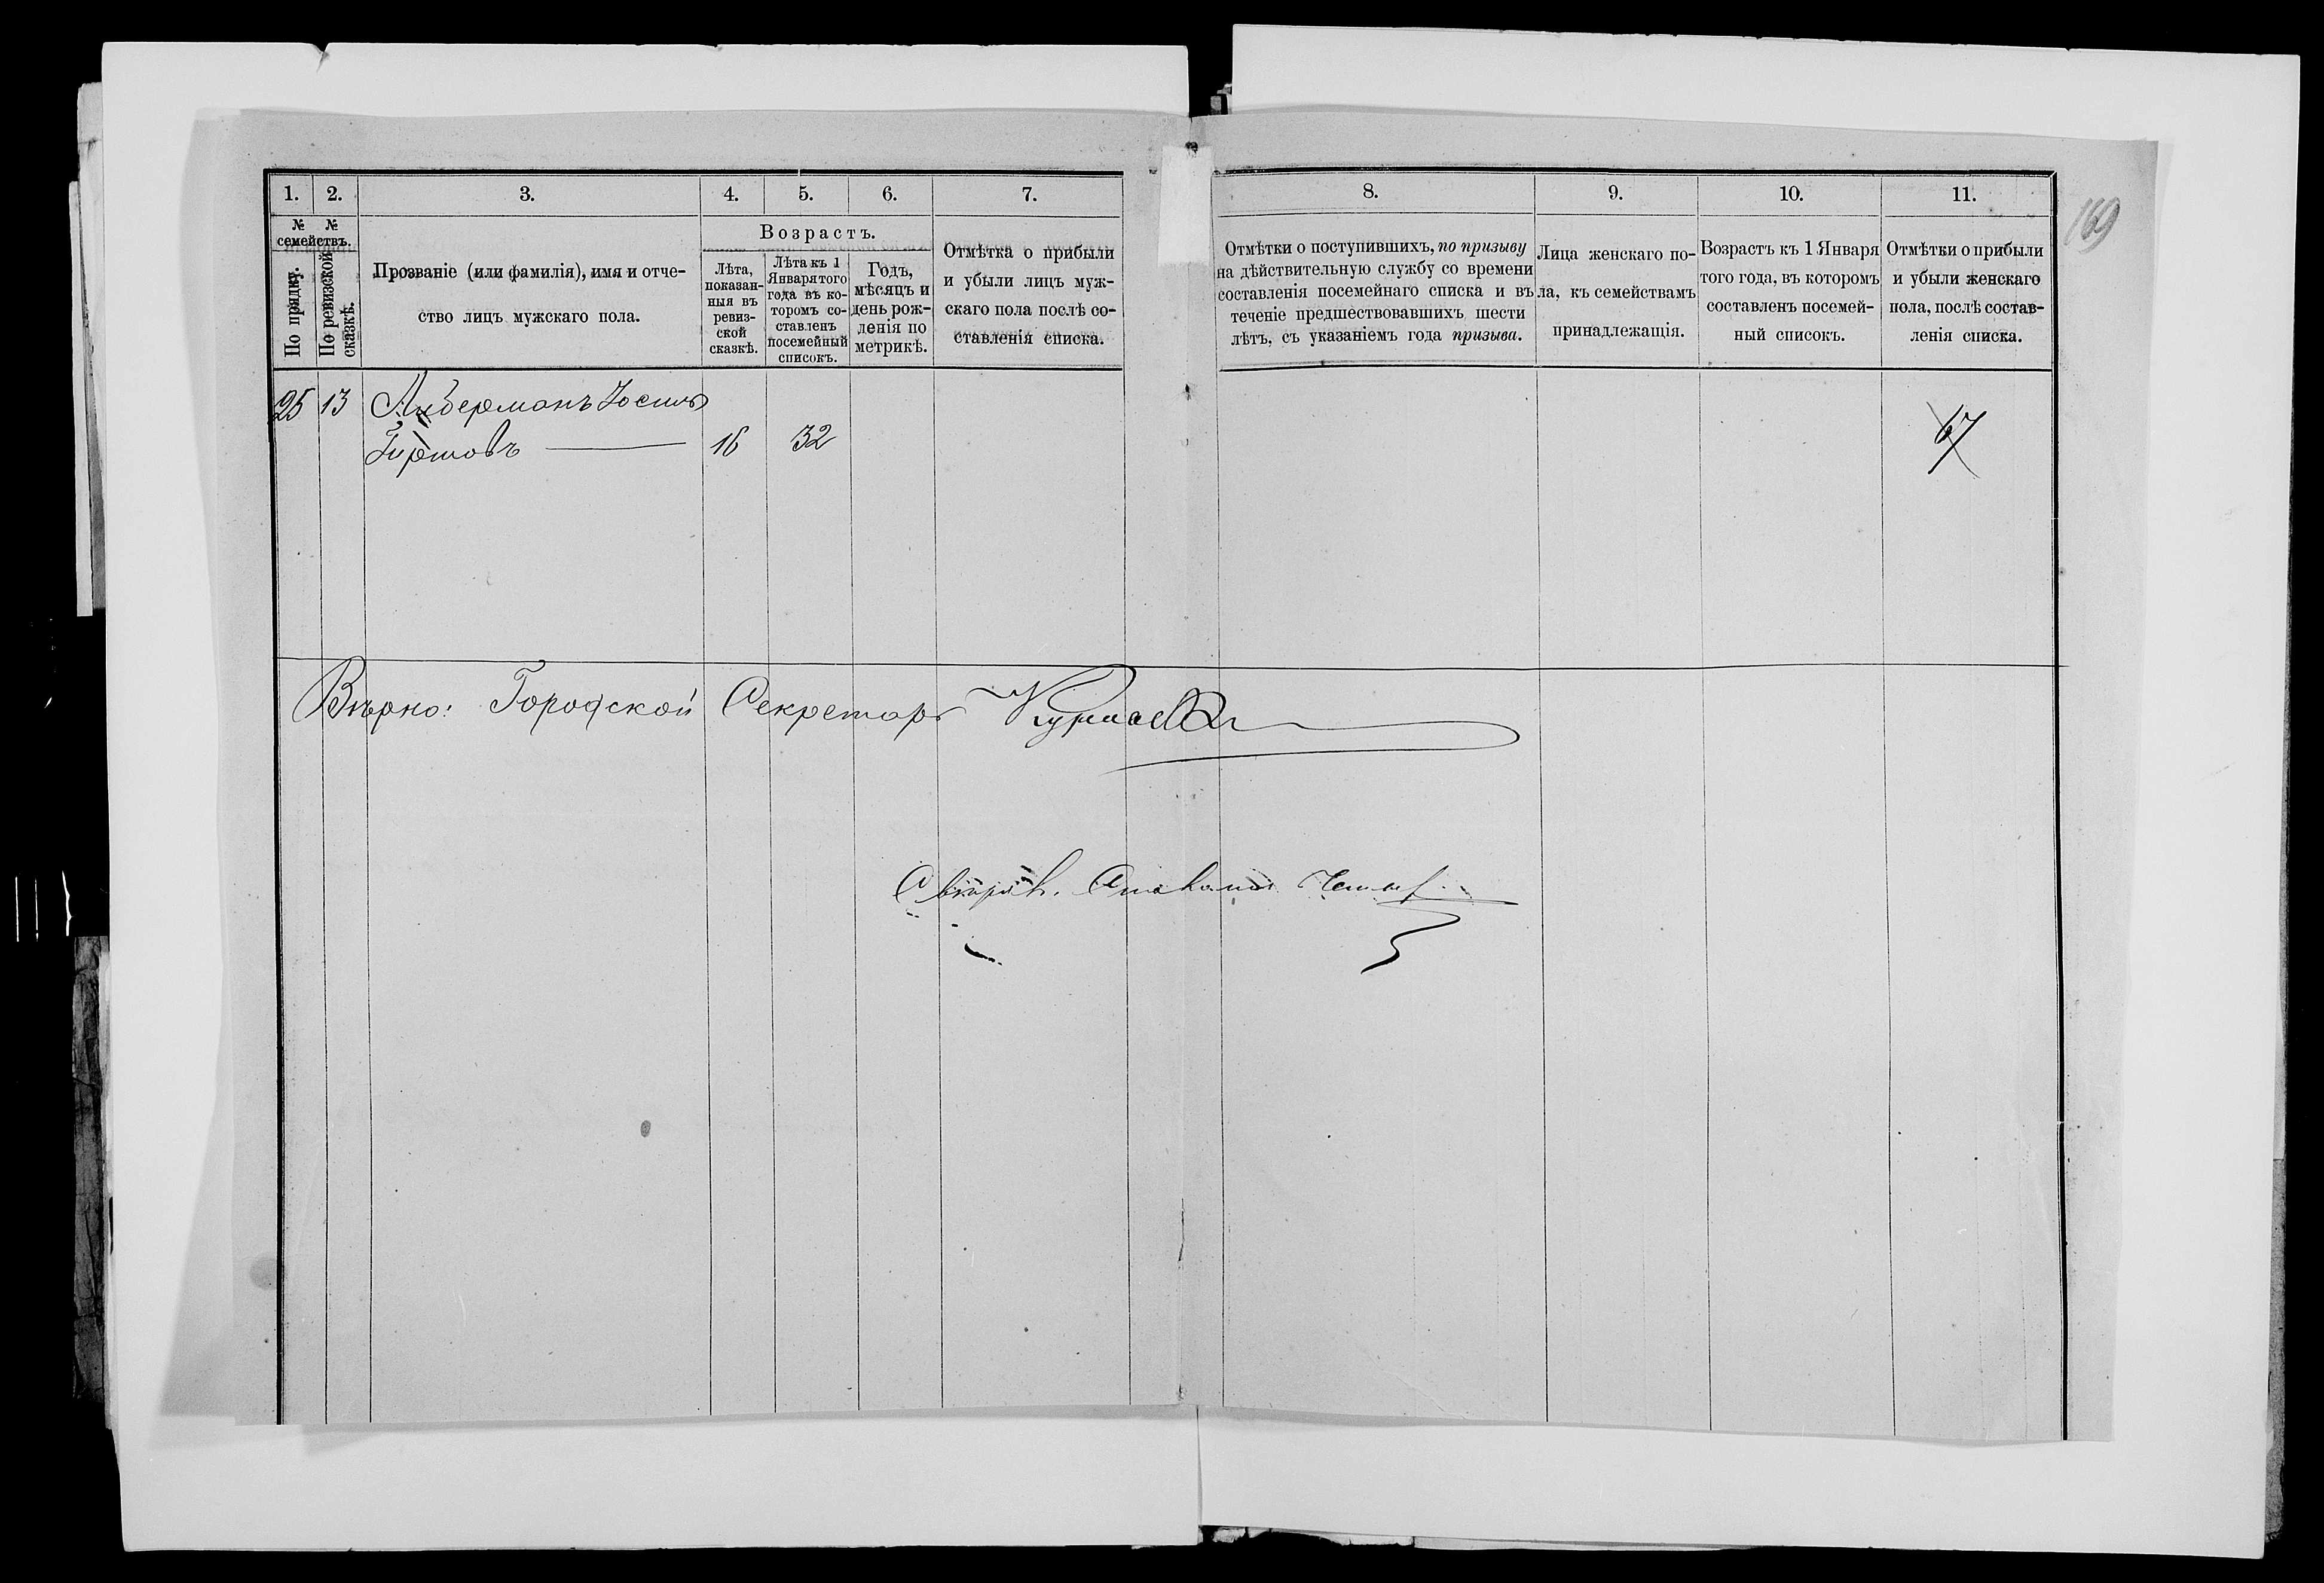 169
1. 2. 3. 4. 5. 6. 7. 8. 9. 10. 11.
№ № семействъ.
По прядку.
По ревизской сказкѣ.
Прозваніе (или фамилія), имя и отче-
ство лицъ мужскаго пола.
Возрастъ.
Лѣта,
показан-
ныя въ
ревиз-
ской
сказкѣ.
Лѣта къ 1
Января того
года въ ко-
торомъ со-
ставленъ
посемейный
списокъ.
Годъ,
мѣсяцъ и
день рож-
ленія по
метрикѣ.
Отмѣтка о прибыли
и убыли лицъ муж-
скаго пола послѣ со-
ставленія списка.
Отмѣтки о поступившихъ, по призыву
на дѣйствительную службу со времени
составленія посемейнаго списка и въ
теченіе предшествовавшихъ шести
лѣтъ, съ указаніемъ года призыва.
Лица женскаго по-
ла, къ семействамъ
принадлежащія.
Возрастъ къ 1 Января
того года, въ которомъ
составленъ посемей-
ный списокъ.
Отмѣтки о прибыли
и убыли женскаго
пола, послѣ состав-
ленія списка.
25 13
16 32
67
Вѣрно: Городской Секретарь